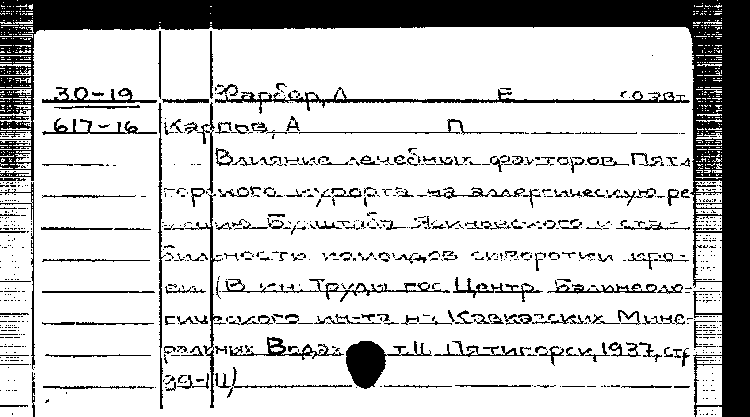 30-19 Фарбер, А Е соавт
617-16 Карпов, А П
Влияние лечебных факторов Пяти
горского курорта на аллергическую ре
акцию Бурштаба Ясиновского и ста-
бильности коллоидов сыворотки кро-
ви. (В кн: Труды гос. Центр Бальнеоло-
гического ин-та на Кавказских Мине-
ральных Водах т.II. Пятигорск, 1937, стр
99-111)